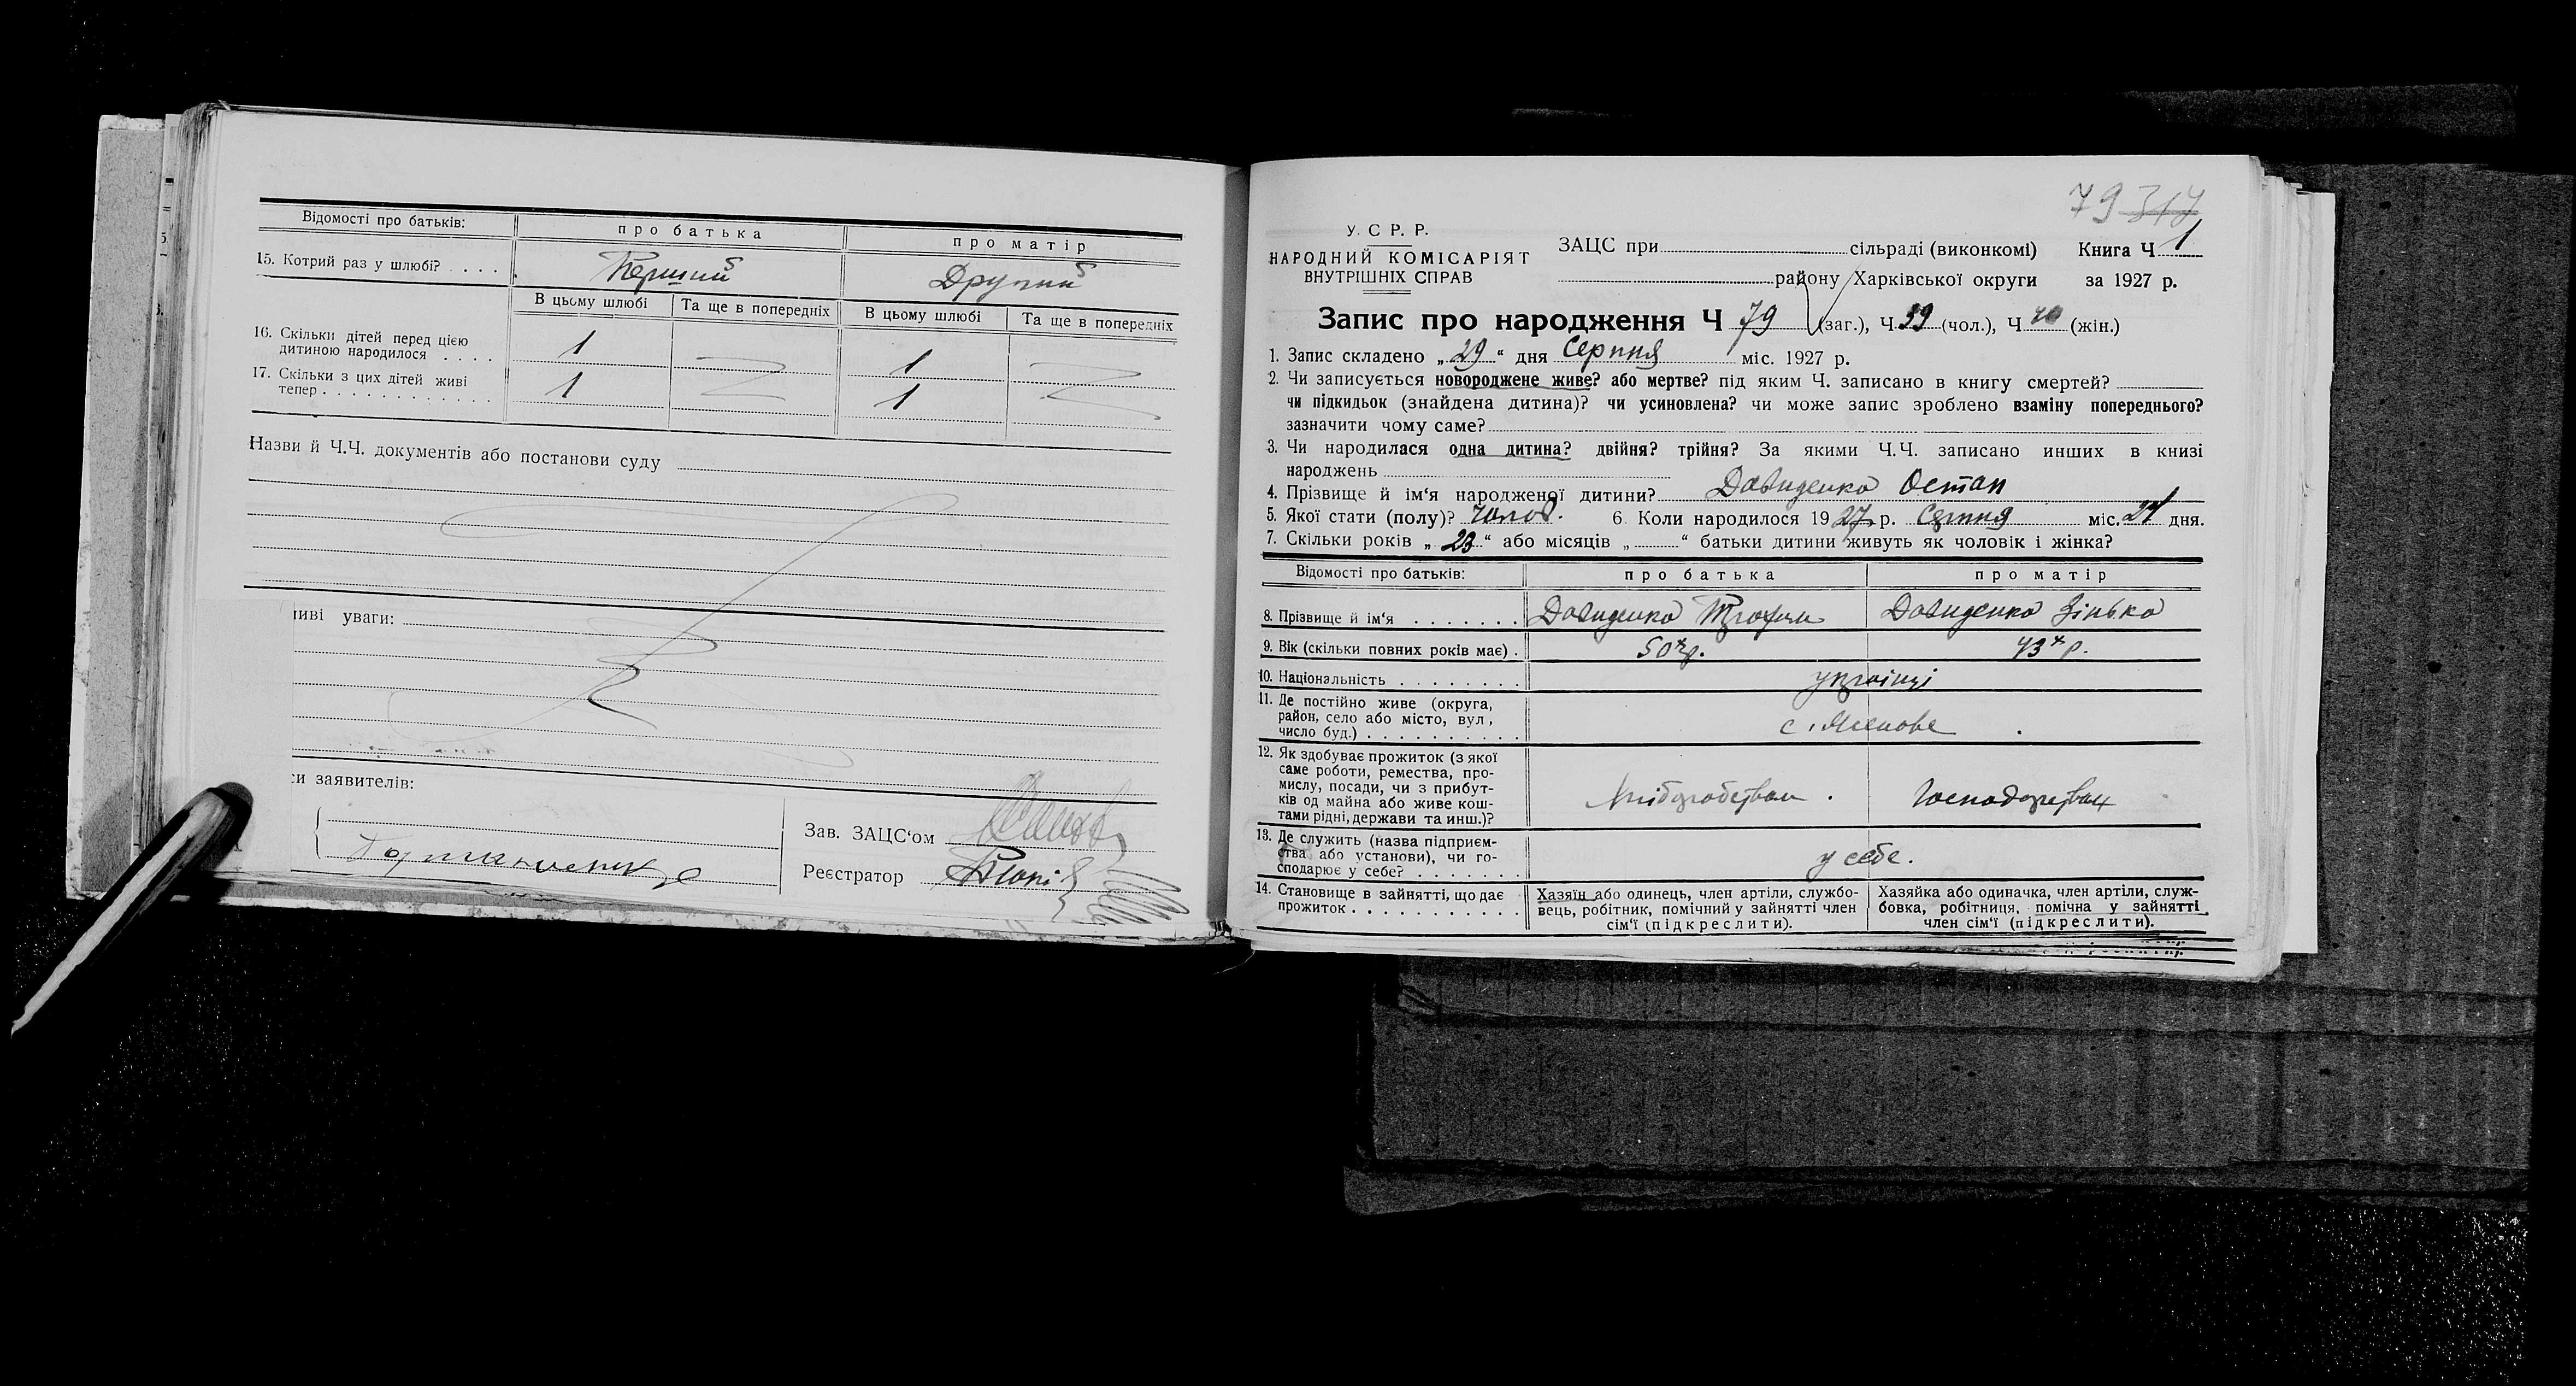 Відомості про батьків:
про батька
про матір
15. Котрий раз у шлюбі? . . . .
Перший
Другий
В цьому шлюбі
Та ще в попередніх
В цьому шлюбі
Та ще в попередніх
16. Скільки дітей перед цією
дитиною народилося . . . .
1
1
17. Скільки з цих дітей живі
тепер . . . . . . . . . . . . .
1
1
Назви й Ч.Ч. документів або постанови суду
иві уваги:
и заявителів:
Зав. ЗАЦС'ом
Реєстратор
79 317
У. С Р. Р.
НАРОДНИЙ КОМІСАРІЯТ
ВНУТРІШНІХ СПРАВ
ЗАЦС при сільраді (виконкомі) Книга Ч 1
району Харківської округи за 1927 р.
Запис про народження Ч 79 (заг.), Ч 39 (чол.), Ч 40 (жін.)
1. Запис складено „29“ дня Серпня міс. 1927 р.
2. Чи записується новороджене живе? або мертве? під яким Ч. записано в книгу смертей?
чи підкидьок (знайдена дитина)? чи усиновлена? чи може запис зроблено взаміну попереднього?
зазначити чому саме?
3. Чи народилася одна дитина? двійня? трійня? За якими Ч.Ч. записано инших в книзі
народжень
4. Прізвище й ім'я народженої дитини? Давиденко Остап
5. Якої стати (полу)? чолов. 6. Коли народилося 1927 р. Серпня міс. 27 дня.
7. Скільки років „23“ або місяців „ “ батьки дитини живуть як чоловік і жінка?
Відомості про батьків:
про батька
про матір
8. Прізвище й ім'я . . . . . . .
Давиденко Трохим
Давиденко Зінька
9. Вік (скільки повних років має) .
50 р.
43 р.
10. Національність . . . . . . . .
українці
11. Де постійно живе (округа,
район, село або місто, вул,
число буд.) . . . . . . . . . .
с.
12. Як здобуває прожиток (з якої
саме роботи, ремества, про-
мислу, посади, чи з прибут-
ків од майна або живе кош-
тами рідні, держави та инш.)?
Хліборобством.
Господарством
13. Де служить (назва підприєм-
ства або установи), чи го-
сподарює у себе? . . . . . . .
у себе.
14. Становище в зайнятті, що дає
прожиток . . . . . . . . . . .
Хазяїн або одинець, член артіли, службо-
вець, робітник, помічний у зайнятті член
сім'ї (підкреслити).
Хазяйка або одиначка, член артіли, служ-
бовка, робітниця, помічна у зайнятті
член сім'ї (підкреслити).